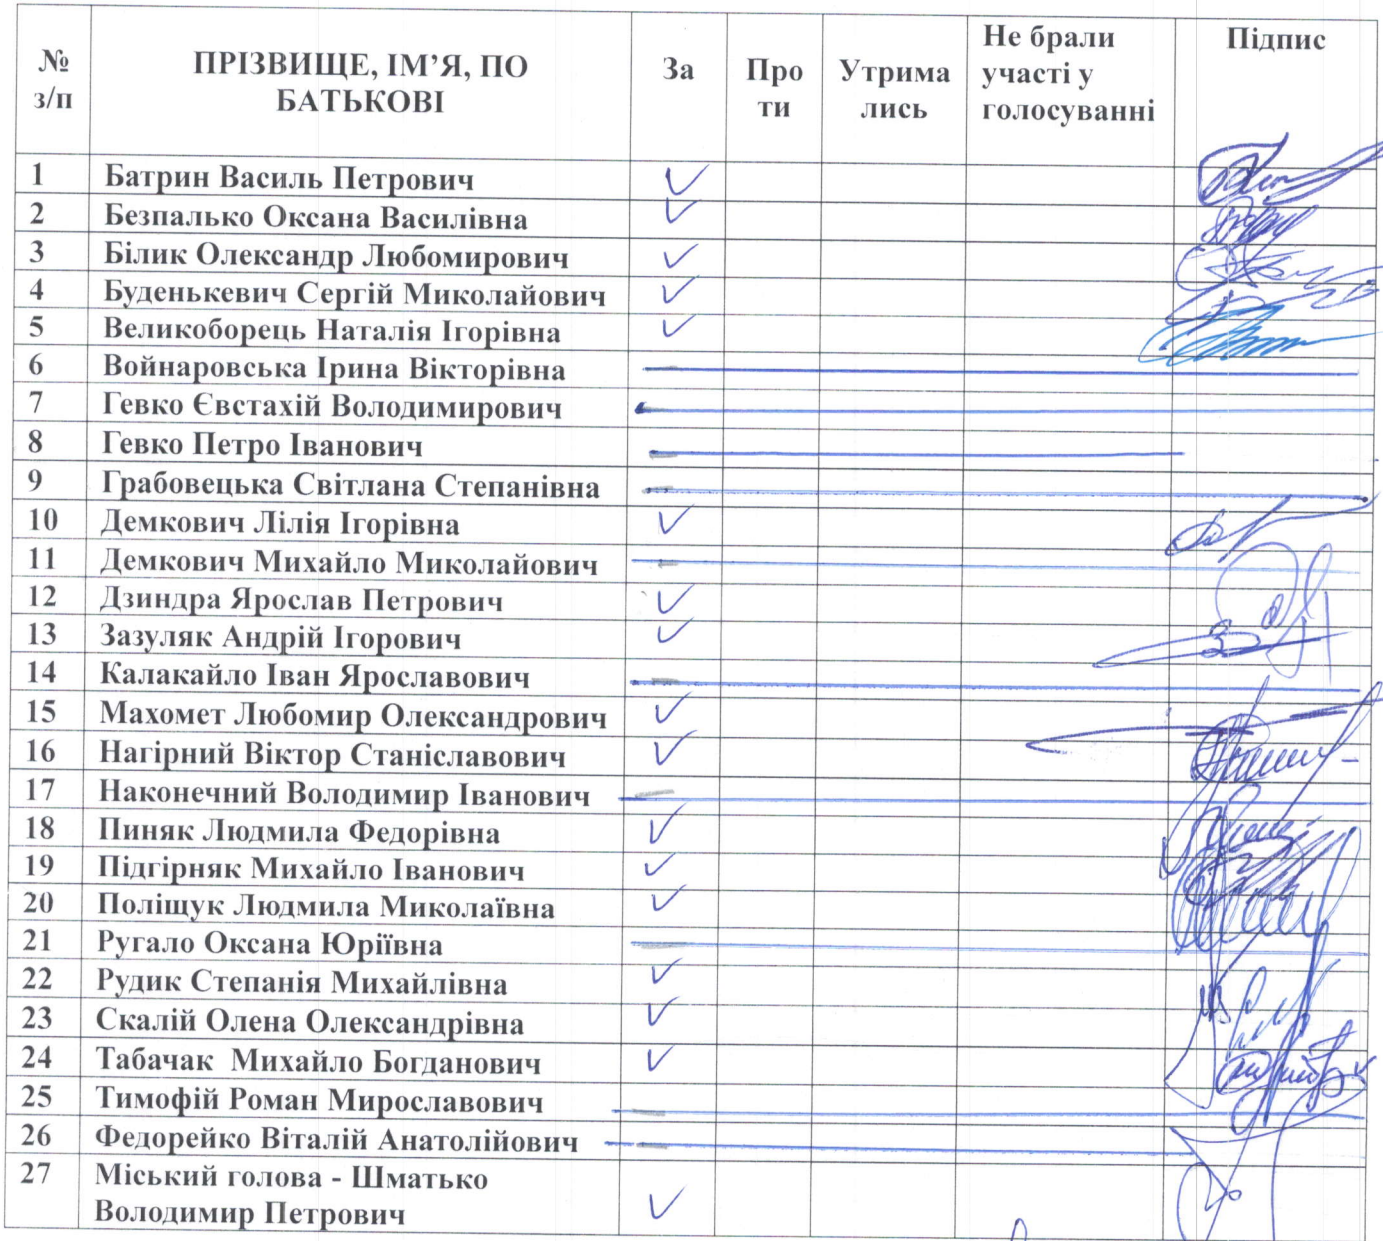 № з/п
ПРІЗВИЩЕ, ІМ’Я, ПО БАТЬКОВІ
За
Про ти
Утрима лись
Не брали участі у голосуванні
Підпис
1 Батрин Василь Петрович ✓
2 Безпалько Оксана Василівна ✓
3 Білик Олександр Любомирович ✓
4 Буденькевич Сергій Миколайович ✓
5 Великоборець Наталія Ігорівна ✓
6 Войнаровська Ірина Вікторівна
7 Гевко Євстахій Володимирович
8 Гевко Петро Іванович
9 Грабовецька Світлана Степанівна
10 Демкович Лілія Ігорівна ✓
11 Демкович Михайло Миколайович
12 Дзиндра Ярослав Петрович ✓
13 Зазуляк Андрій Ігорович ✓
14 Калакайло Іван Ярославович
15 Махомет Любомир Олександрович ✓
16 Нагірний Віктор Станіславович ✓
17 Наконечний Володимир Іванович
18 Пиняк Людмила Федорівна ✓
19 Підгірняк Михайло Іванович ✓
20 Поліщук Людмила Миколаївна ✓
21 Ругало Оксана Юріївна
22 Рудик Степанія Михайлівна ✓
23 Скалій Олена Олександрівна ✓
24 Табачак Михайло Богданович ✓
25 Тимофій Роман Мирославович
26 Федорейко Віталій Анатолійович
27 Міський голова - Шматько
Володимир Петрович ✓